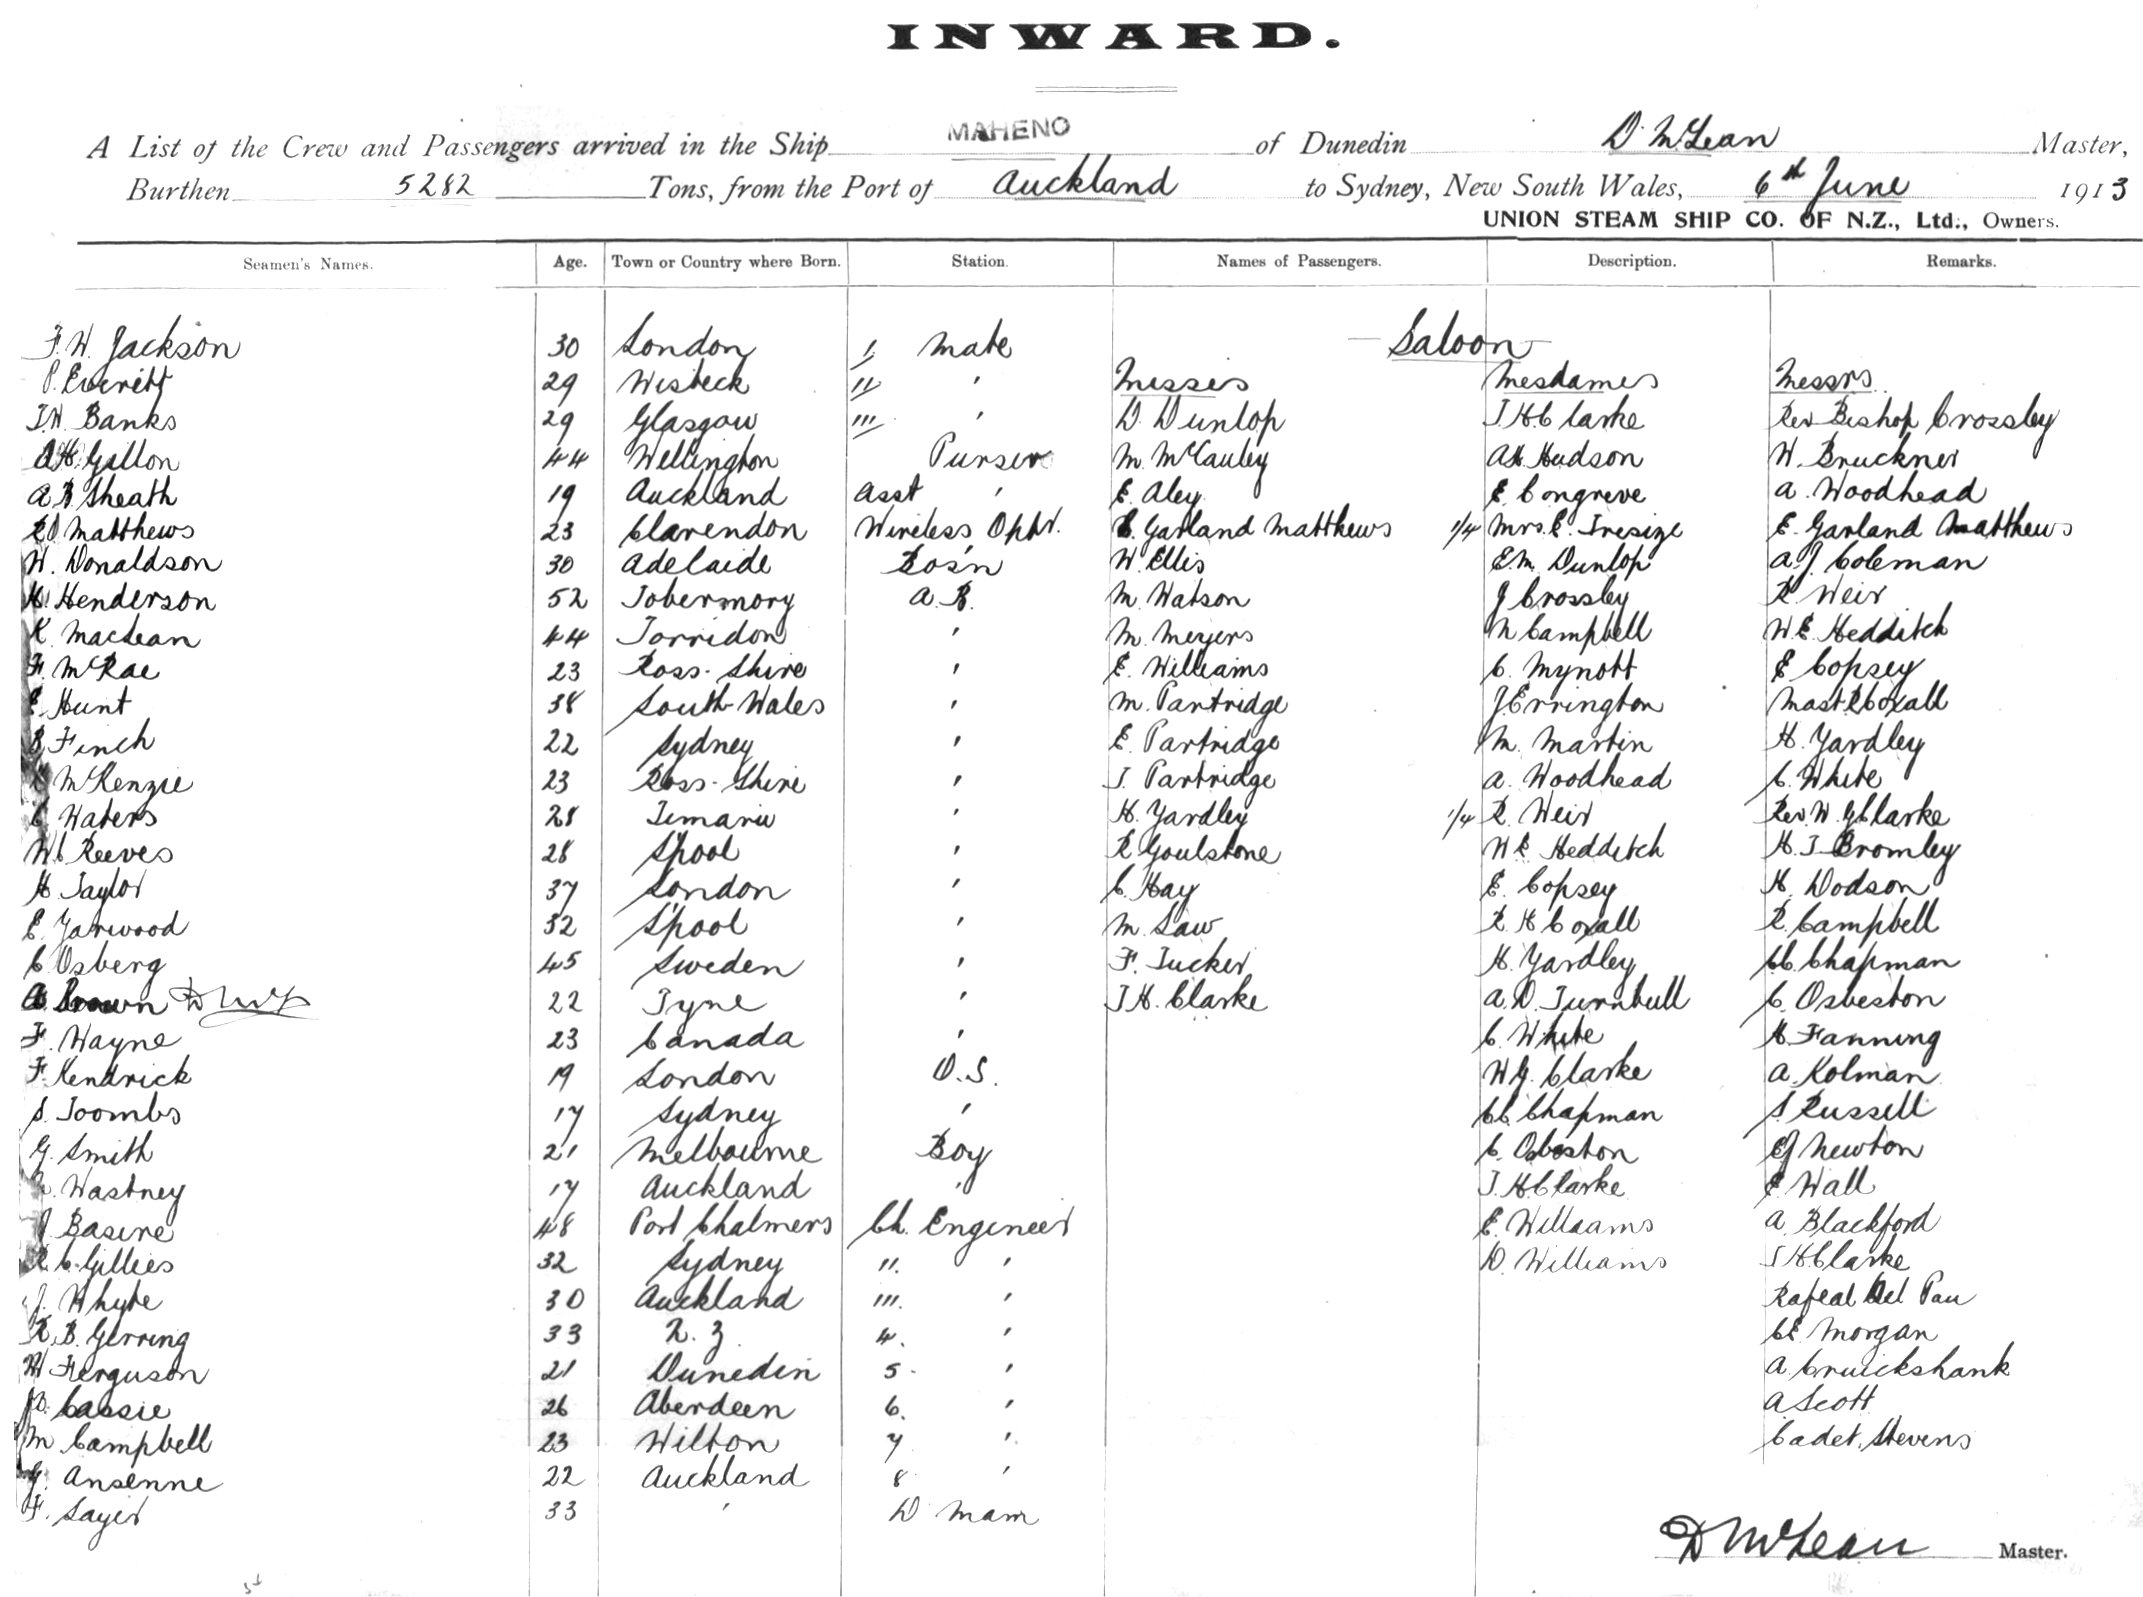 INWARD.
A List of the Crew and Passengers arrived in the Ship MAHENO of Dunedin D McLean Master,
Burthen 5282 Tons, from the Port of Auckland to Sydney, New South Wales, 6th June 1913
UNION STEAM SHIP CO. OF N.Z., Ltd., Owners.
Seamen's Names. Age. Town or Country where Born. Station. Names of Passengers. Description. Remarks.
F. W. Jackson 30 London 1 Mate Saloon
P. Everitt 29 Wisbeck 11 " Misses Mesdames Messrs
J. W. Banks 29 Glasgow 111 " D. Dunlop J. H. Clarke Rev Bishop Crossley
A H. Gillon 44 Wellington Purser M. McCauley A H Hudson W. Bruckner
A B Sheath 19 Auckland Asst ' E. Aley E. Congreve A. Woodhead
R D Matthews 23 Clarendon Wireless Optr. C. Garland Matthews 1/4 Mrs E. Tresize E. Garland Matthews
W. Donaldson 30 Adelaide Bos'n W. Ellis E. M. Dunlop A. J. Coleman
H. Henderson 52 Tobermory A. B. M. Watson J Crossley R Weir
K. MacLean 44 Torridon ' M. Meyers N Campbell W. E. Hedditch
F. McRae 23 Ross-Shire ' E. Williams C. Mynott E Copsey
E Hunt 38 South Wales ' M. Partridge J Errington Mast R Coxall
B Finch 22 Sydney ' E. Partridge M. Martin H. Yardley
K McKenzie 23 Ross-Shire ' J. Partridge A. Woodhead C. White
C Waters 28 Timaru ' H. Yardley 1/4 R. Weir Rev. W. G Clarke
W C Reeves 28 L'pool ' R Goulstone W E Hedditch H. J Bromley
H Taylor 37 London ' C. Hay E. Copsey H. Dodson
E. Yarwood 32 L'pool ' M. Law R H Coxall R. Campbell
C Osberg 45 Sweden ' F. Tucker H. Yardley C C. Chapman
Brown 22 Tyne ' J H. Clarke A. D. Turnbull C. Osbeston
F. Wayne 23 Canada ' C. White H. Fanning
F. Kendrick 19 London O. S. W G. Clarke A. Kolman
S. Toombs 17 Sydney ' C C. Chapman S. Russell
G. Smith 21 Melbourne Boy C. Osbeston E J Newton
Wastney 17 Auckland ' J. H. Clarke E Wall
J Basire 48 Port Chalmers Ch. Engineer E. Williams A. Blackford
R. C. Gillies 32 Sydney 11. ' D. Williams J H Clarke
J. Whyte 30 Auckland 111. ' Rafeal Del Pau
R. B. Gerring 33 N. Z 4. ' C E Morgan
W Ferguson 21 Dunedin 5. ' A Cruickshank
D. Cassie 26 Aberdeen 6. ' A Scott
M Campbell 23 Wilton 7 ' Cadet Stevens
G. Ansenne 22 Auckland 8 '
F. Sayer 33 ' D Man
D McLean Master.